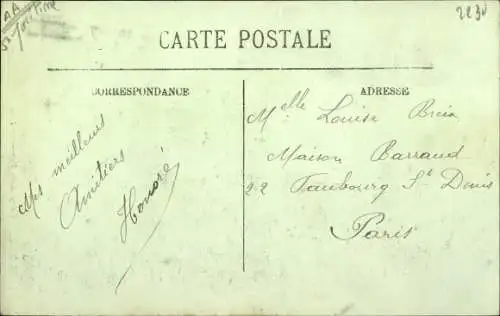 CARTE POSTALE
CORRESPONDANCE
Mes meilleurs
Amitiers
Honoré
ADRESSE
Melle Louise
Maison Barraud
22 Faubourg St Denis
Paris